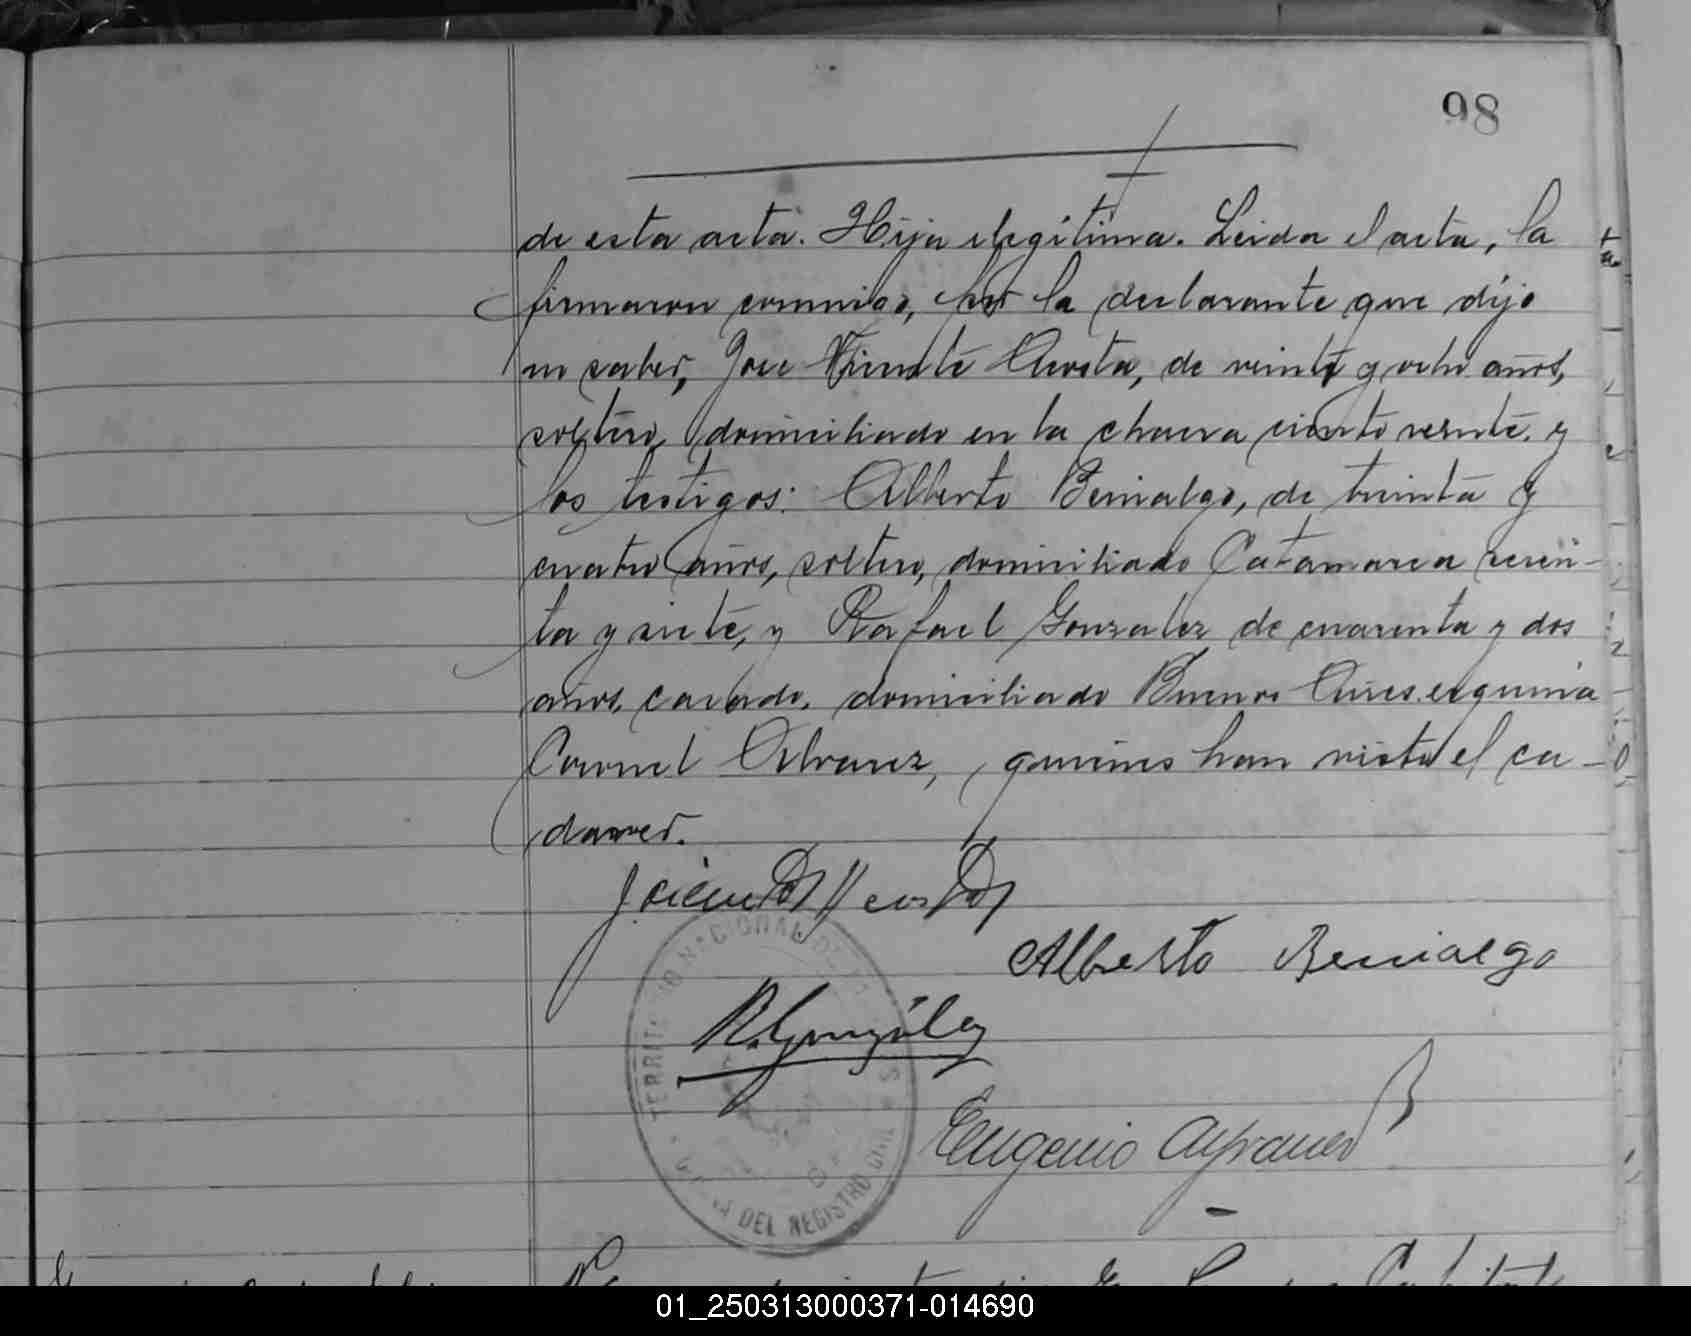 98
de esta acta. Hija ilegítima. Leida el acta, la
firmaron conmigo, por la declarante que dijo
no saber, Jose Vicente Acosta, de veinte y ocho años,
soltero, domiciliado en la chacra ciento veinte. y
los testigos: Alberto Benialgo, de treinta y
cuatro años, soltero, domiciliado Catamarca sesen-
ta y siete, y Rafael Gonzalez de cuarenta y dos
años, casado, domiciliado Buenos Aires esquina
Coronel Alvarez, quienes han visto el ca-
daver.
J Vicente Acosta
Alberto Benialgo
R. González
Eugenio
TERRITORIO NACIONAL DE
DEL REGISTRO CIVIL
01_250313000371-014690